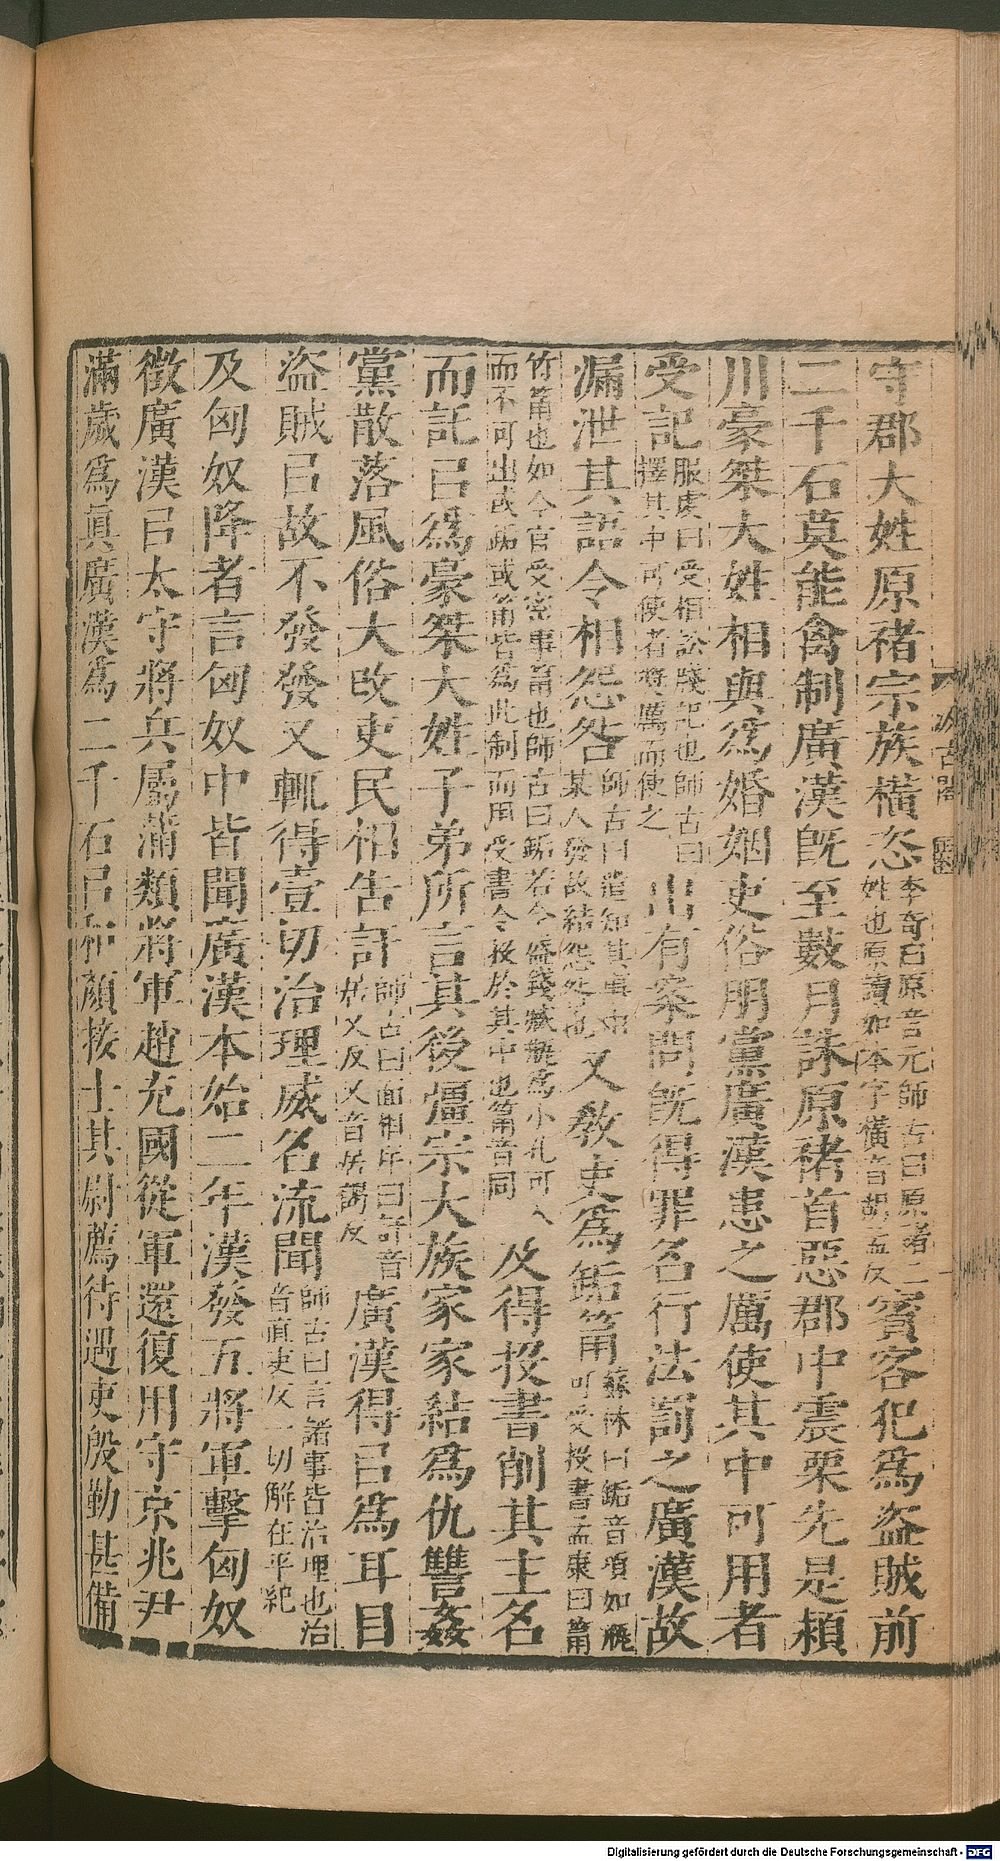 守郡大姓原褚宗族橫恣李奇曰原音元師古曰原褚二姓也原讀如本字橫音胡孟反賓客犯爲盜賊前
二千石莫能禽制廣漢旣至數月誅原褚首惡郡中震栗先是潁
川豪桀大姓相與爲婚姻吏俗朋黨廣漢患之厲使其中可用者
受記服虔曰受相訟牋記也師古曰擇其中可使者將厲而使之出有案問旣得罪名行法罰之廣漢故
漏泄其語令相怨咎師古曰遣知其事由某人發故結怨咎也又敎吏爲缿筩蘇林曰缿音項如瓶可受投書孟康曰筩
竹筩也如今官受密事筩也師古曰缿若今盛錢臧瓶爲小孔可入而不可出或缿或筩皆爲此制而用受書令投於其中也筩音同及得投書削其主名
而託㠯爲豪桀大姓子弟所言其後彊宗大族家家結爲仇讐姦
黨散落風俗大改吏民相告訐師古曰面相斥曰訐音居乂反又音居謁反廣漢得㠯爲耳目
盜賊㠯故不發發又輒得壹切治理威名流聞師古曰言諸事皆治理也治音直吏反一切解在平紀
及匈奴降者言匈奴中皆聞廣漢本始二年漢發五將軍擊匈奴
徵廣漢㠯太守將兵屬蒲類將軍趙充國從軍還復用守京兆尹
滿歲爲眞廣漢爲二千石㠯和顏接士其尉薦待遇吏殷勤甚備
汲古閣
Digitalisierung gefördert durch die Deutsche Forschungsgemeinschaft - DFG